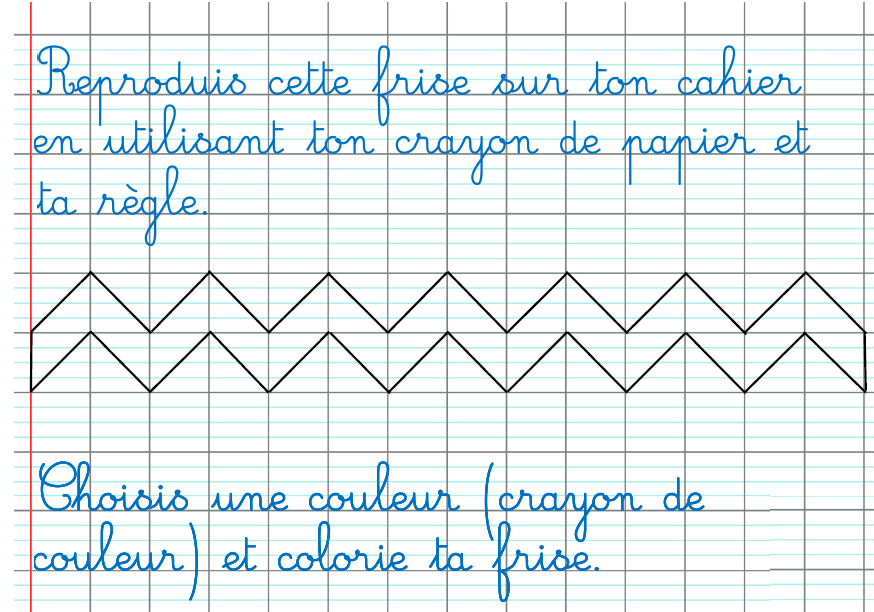 Reproduis cette frise sur ton cahier
en utilisant ton crayon de papier et
ta règle.
Choisis une couleur (crayon de
couleur) et colorie ta frise.